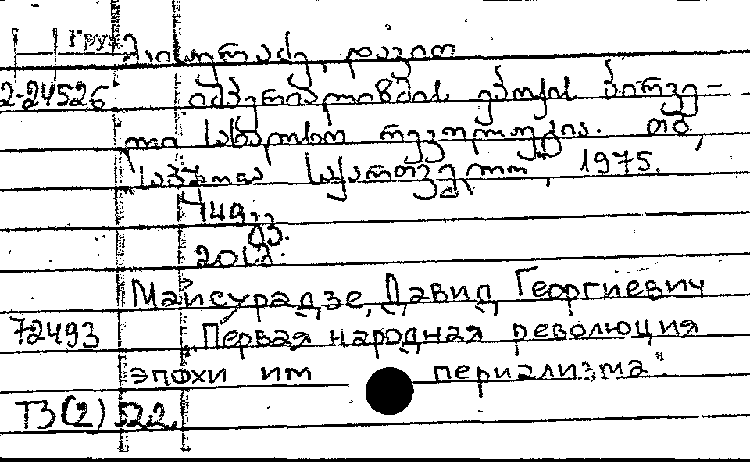 Груз.
მაისურაძე, დავით
2-24526 იმპერიალიზმის ეპოქის პირვე-
ლი სახალხო რევოლუცია. თბ.,
საბჭოთა საქართველო, 1975.
149 გვ.
Майсурадзе, Давид Георгиевич
72493 Первая народная революция
эпохи им периализма".
Т3(2)522.